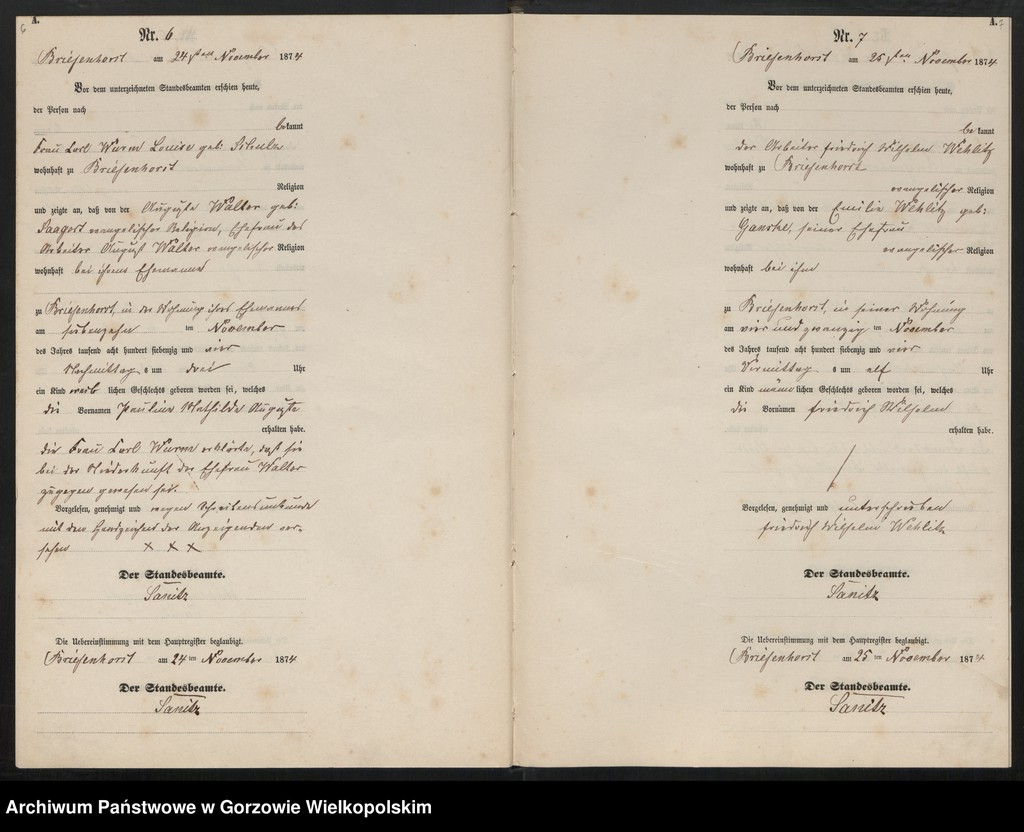 6
A.
Nr. 6
Briesenhorst am 24sten November 1874
Vor dem unterzeichneten Standesbeamten erschien heute,
der Person nach
bekannt
Frau Carl Wurm Louise geb: Schulz
wohnhaft zu Briesenhorst
Religion
und zeigte an, daß von der Auguste Walter geb:
evangelischer Religion, Ehefrau des
Arbeiter August Walter evangelischer Religion
wohnhaft bei ihrem Ehemanne
zu Briesenhorst, in der Wohnung ihres Ehemannes
am siebenzehn ten November
des Jahres tausend acht hundert siebenzig und vier
Nachmittag s um drei Uhr
ein Kind weib lichen Geschlechts geboren worden sei, welches
die Vornamen Pauline Mathilde Auguste
erhalten habe.
die Frau Carl Wurm erklärte, daß sie
bei der Niederkunft der Ehefrau Walter
zugegen gewesen sei.
Vorgelesen, genehmigt und wegen Schreibensunkunde
mit dem Handzeichen der Anzeigenden ver-
sehen x x x
Der Standesbeamte.
Sanitz
Die Uebereinstimmung mit dem Hauptregister beglaubigt.
Briesenhorst am 24 ten November 1874
Der Standesbeamte.
Sanitz
A. 7
Nr. 7
Briesenhorst am 25sten November 1874
Vor dem unterzeichneten Standesbeamten erschien heute,
der Person nach
bekannt
der Arbeiter Friedrich Wilhelm Wehlitz
wohnhaft zu Briesenhorst
evangelischer Religion
und zeigte an, daß von der Emilie Wehlitz geb:
Ganske, seiner Ehefrau
evangelischer Religion
wohnhaft bei ihm
zu Briesenhorst, in seiner Wohnung
am vier und zwanzig ten November
des Jahres tausend acht hundert siebenzig und vier
Vormittag s um elf Uhr
ein Kind männ lichen Geschlechts geboren worden sei, welches
die Vornamen Friedrich Wilhelm
erhalten habe.
Vorgelesen, genehmigt und unterschrieben
Friedrich Wilhelm Wehlitz
Der Standesbeamte.
Sanitz
Die Uebereinstimmung mit dem Hauptregister beglaubigt.
Briesenhorst am 25 ten November 1874
Der Standesbeamte.
Sanitz
Archiwum Państwowe w Gorzowie Wielkopolskim